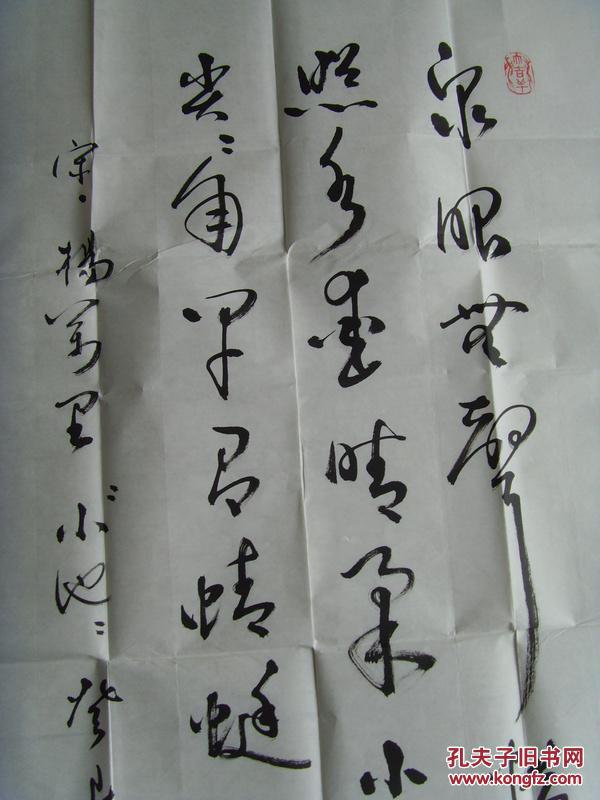 泉眼無聲
照水愛晴柔小
尖〻角早有蜻蜓
宋·楊萬里"小池"癸
孔夫子旧书网
www.kongfz.com